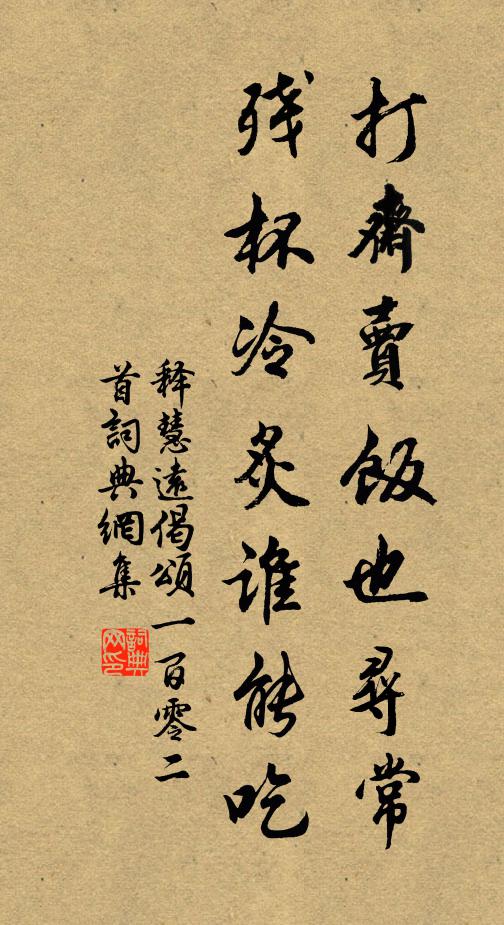 打齋賣飯也尋常
残杯冷炙誰能吃
释慧遠偈頌一百零二
首詞典網集
詞典
网印